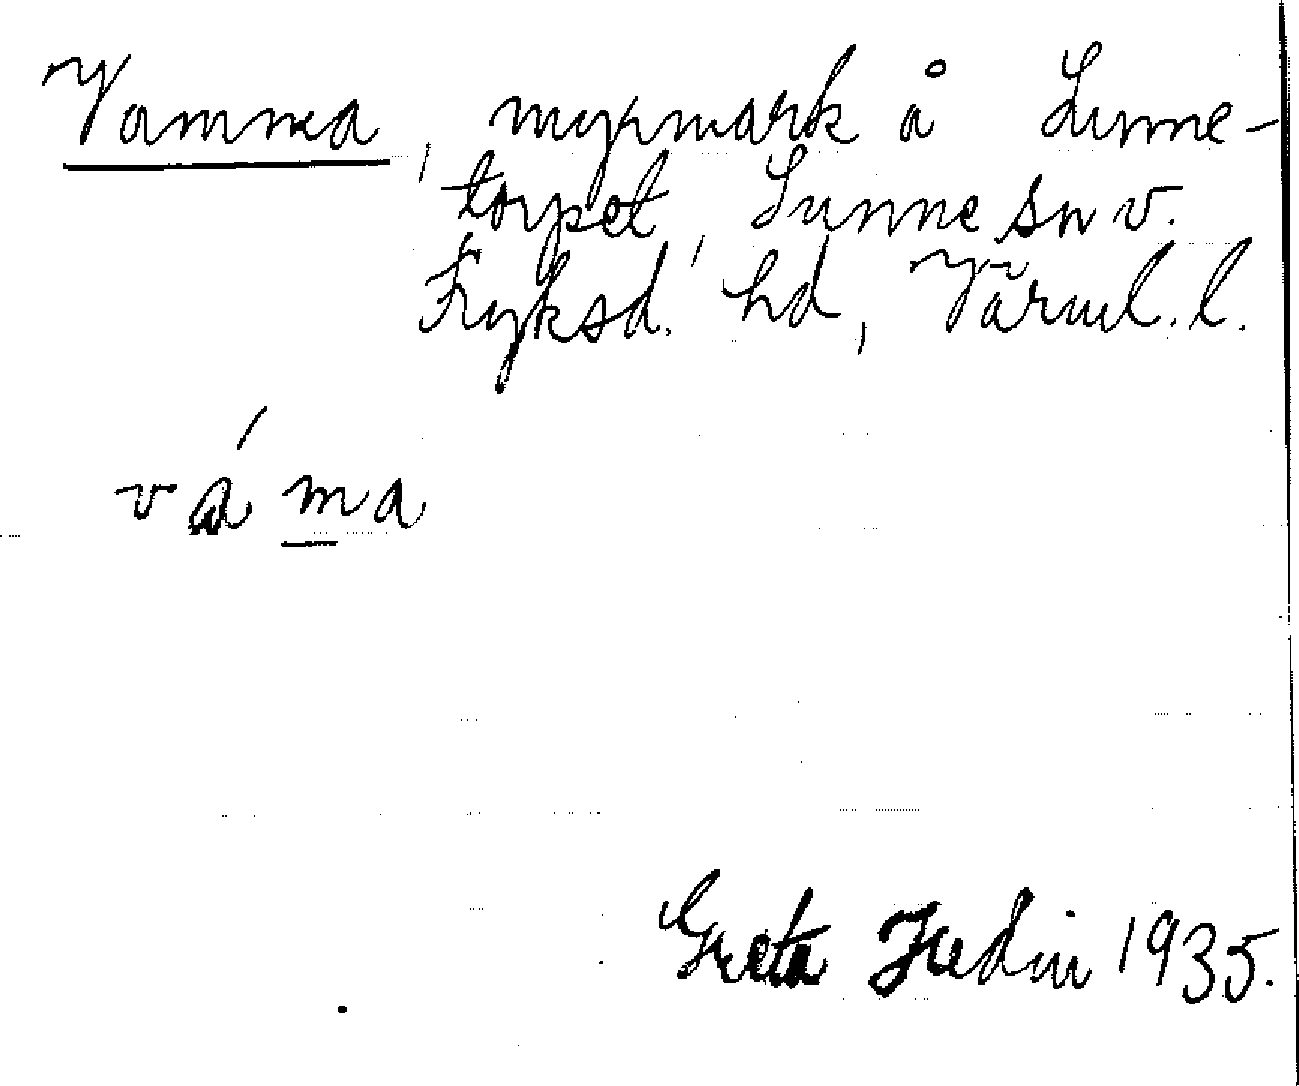 Vamma, myrmark å Sunne-
torpet, Sunne sn v.
Fryksd. hd, Värml. l.
váma
Greta Hedin 1935.